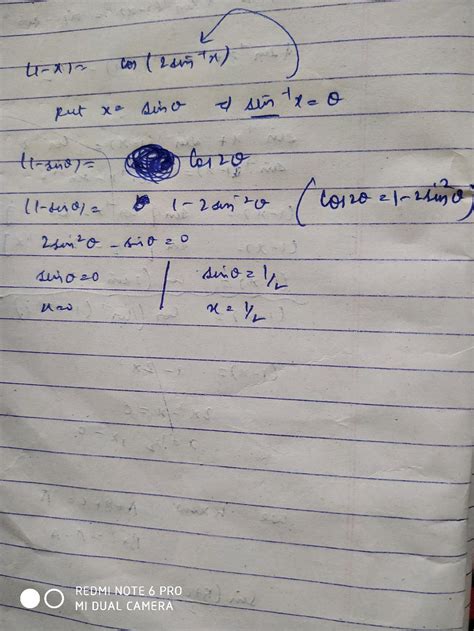 (1-x) = cos (2sin⁻¹x)
put x = sinθ ⇒ sin⁻¹x = θ
(1-sinθ) = cos2θ
(1-sinθ) = 1-2sin²θ (cos2θ = 1-2sin²θ)
2sin²θ - sinθ = 0
sinθ = 0 | sinθ = 1/2
x = 0 | x = 1/2
REDMI NOTE 6 PRO
MI DUAL CAMERA